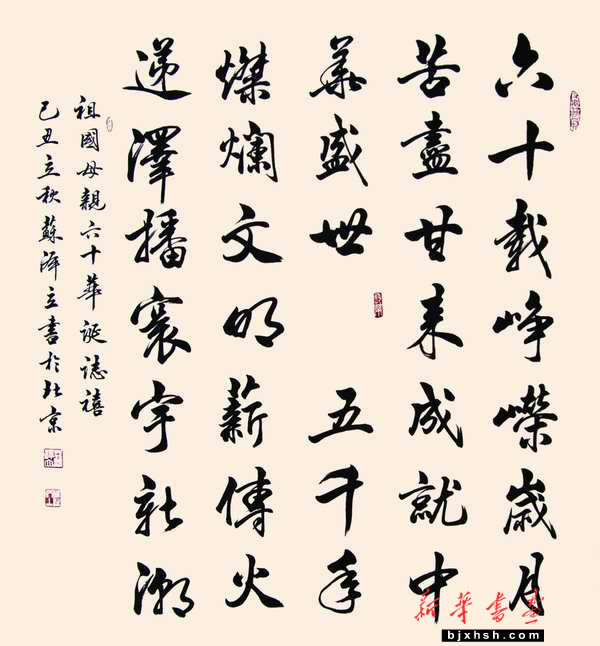 六十載崢嶸歲月
苦盡甘來成就中
華盛世 五千年
燦爛文明薪傳火
递澤播寰宇新潮
祖國母親六十華誕誌禧
己丑立秋蘇澤立書於北京
新華書畫
bjxhsh.com